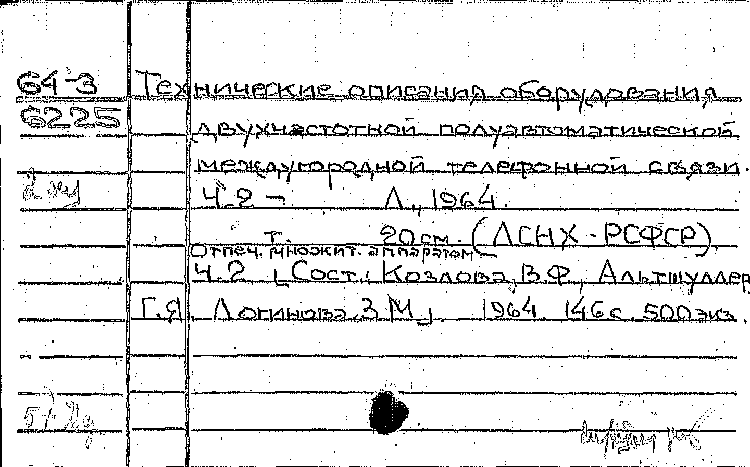 64-3 Технические описания оборудования
6225 двухчастотной полуавтоматической
междугородной телефонной связи.
Ч.2 - Л., 1964.
т. 20 см. (ЛСНХ - РСФСР)
Отпеч. множит. аппаратом
Ч.2 [Сост.: Козлова, В.Ф., Альтшуллер
Г.Я. Логинова З.М.] 1964. 146 с. 500 экз.